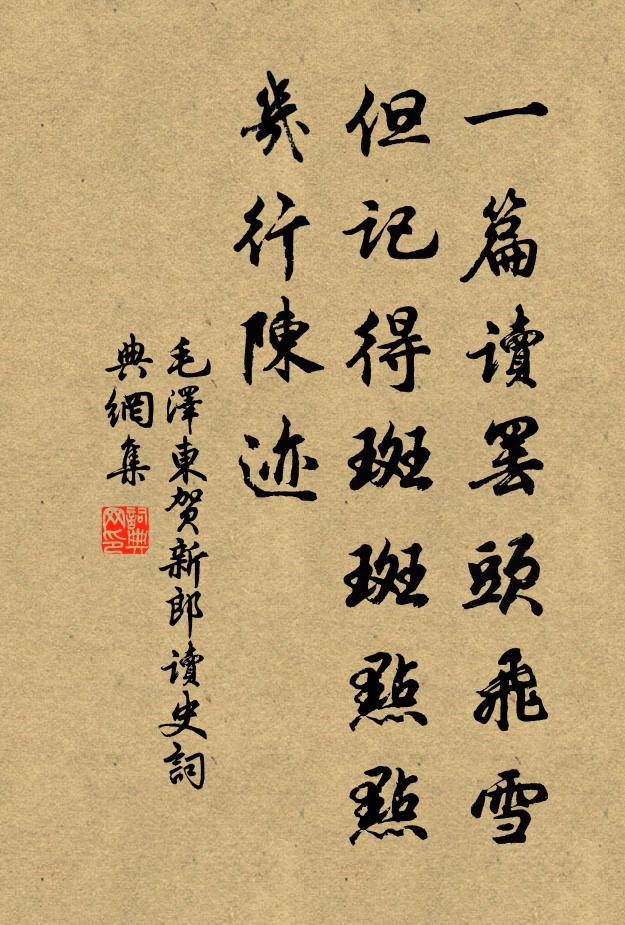 一篇讀罷頭飛雪
但記得斑斑點點
幾行陳迹
毛澤東賀新郎讀史詞
典網集
詞典
网印